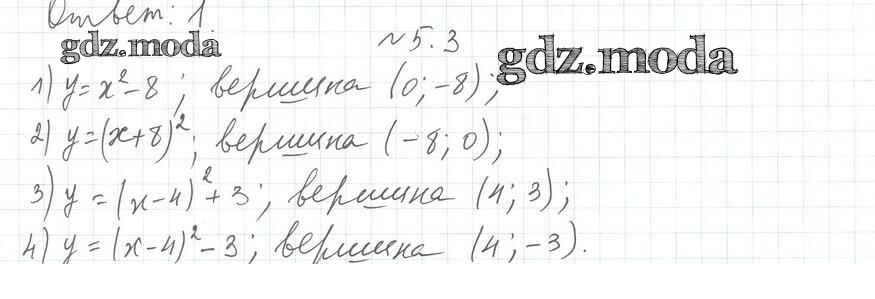 Ответ: 1.
gdz.moda
№5.3
gdz.moda
1) y=x²-8; вершина (0;-8);
2) y=(x+8)²; вершина (-8;0);
3) y=(x-4)²+3; вершина (4;3);
4) y=(x-4)²-3; вершина (4;-3).